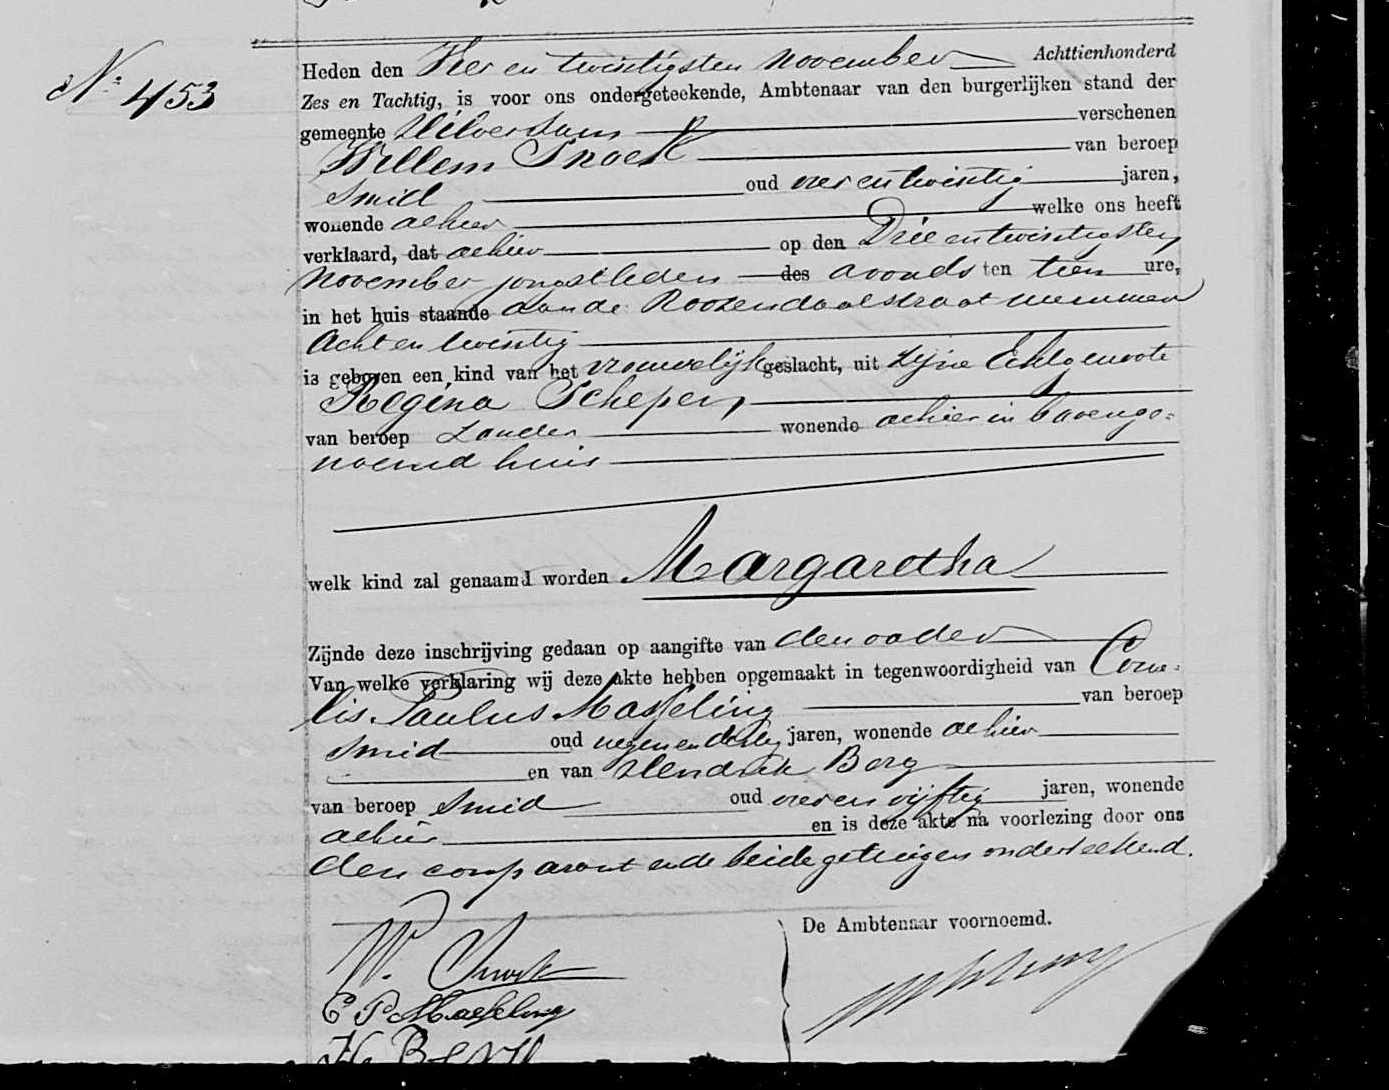 Nº 453
Heden den Vier en twintigsten November Achttienhonderd
Zes en Tachtig, is voor ons ondergeteekende, Ambtenaar van den burgerlijken stand der
gemeente Hilversum verschenen
Willem Snoek van beroep
Smid oud vier en twintig jaren,
wonende alhier welke ons heeft
verklaard, dat alhier op den Drie en twintigsten
November jongstleden des avonds ten tien ure,
in het huis staande aan de Roozendaalstraat nummer
Acht en twintig
is geboren een kind van het vrouwelijk geslacht, uit zijne Echtgenoote
Regina Schepers
van beroep zonder wonende alhier in bovenge-
noemd huis
welk kind zal genaamd worden Margaretha
Zijnde deze inschrijving gedaan op aangifte van den vader
Van welke verklaring wij deze akte hebben opgemaakt in tegenwoordigheid van Corne-
lis Paulus Masseling van beroep
Smid oud negen en dertig jaren, wonende alhier
en van Hendrik Berg
van beroep Smid oud vier en vijftig jaren, wonende
alhier en is deze akte na voorlezing door ons
den comparant en de beide getuigen onderteekend.
De Ambtenaar voornoemd.
W. Snoek
C P Masseling
H Berg